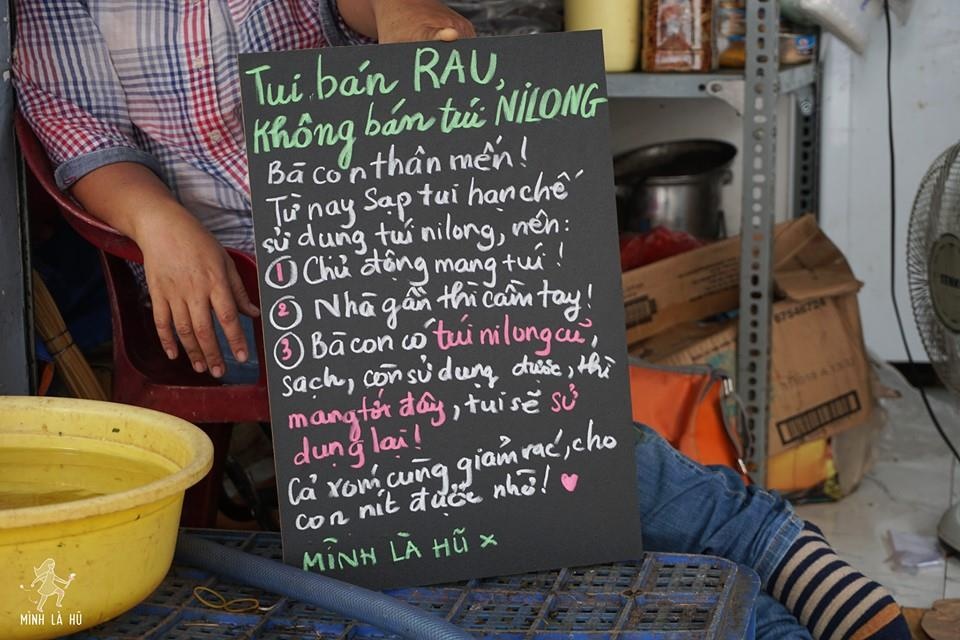 Tui bán RAU,
Không bán túi NILONG
Bà con thân mến!
Từ nay Sạp tui hạn chế
sử dụng túi nilong, nên:
1 Chủ động mang túi!
2 Nhà gần thì cầm tay!
3 Bà con có túi nilong cũ,
sạch, còn sử dụng được, thì
mang tới đây, tụi sẽ sử
dụng lại!
Cả xóm cùng giảm rác, cho
con nít được nhờ!
MÌNH LÀ HŨ x
MÌNH LÀ HŨ